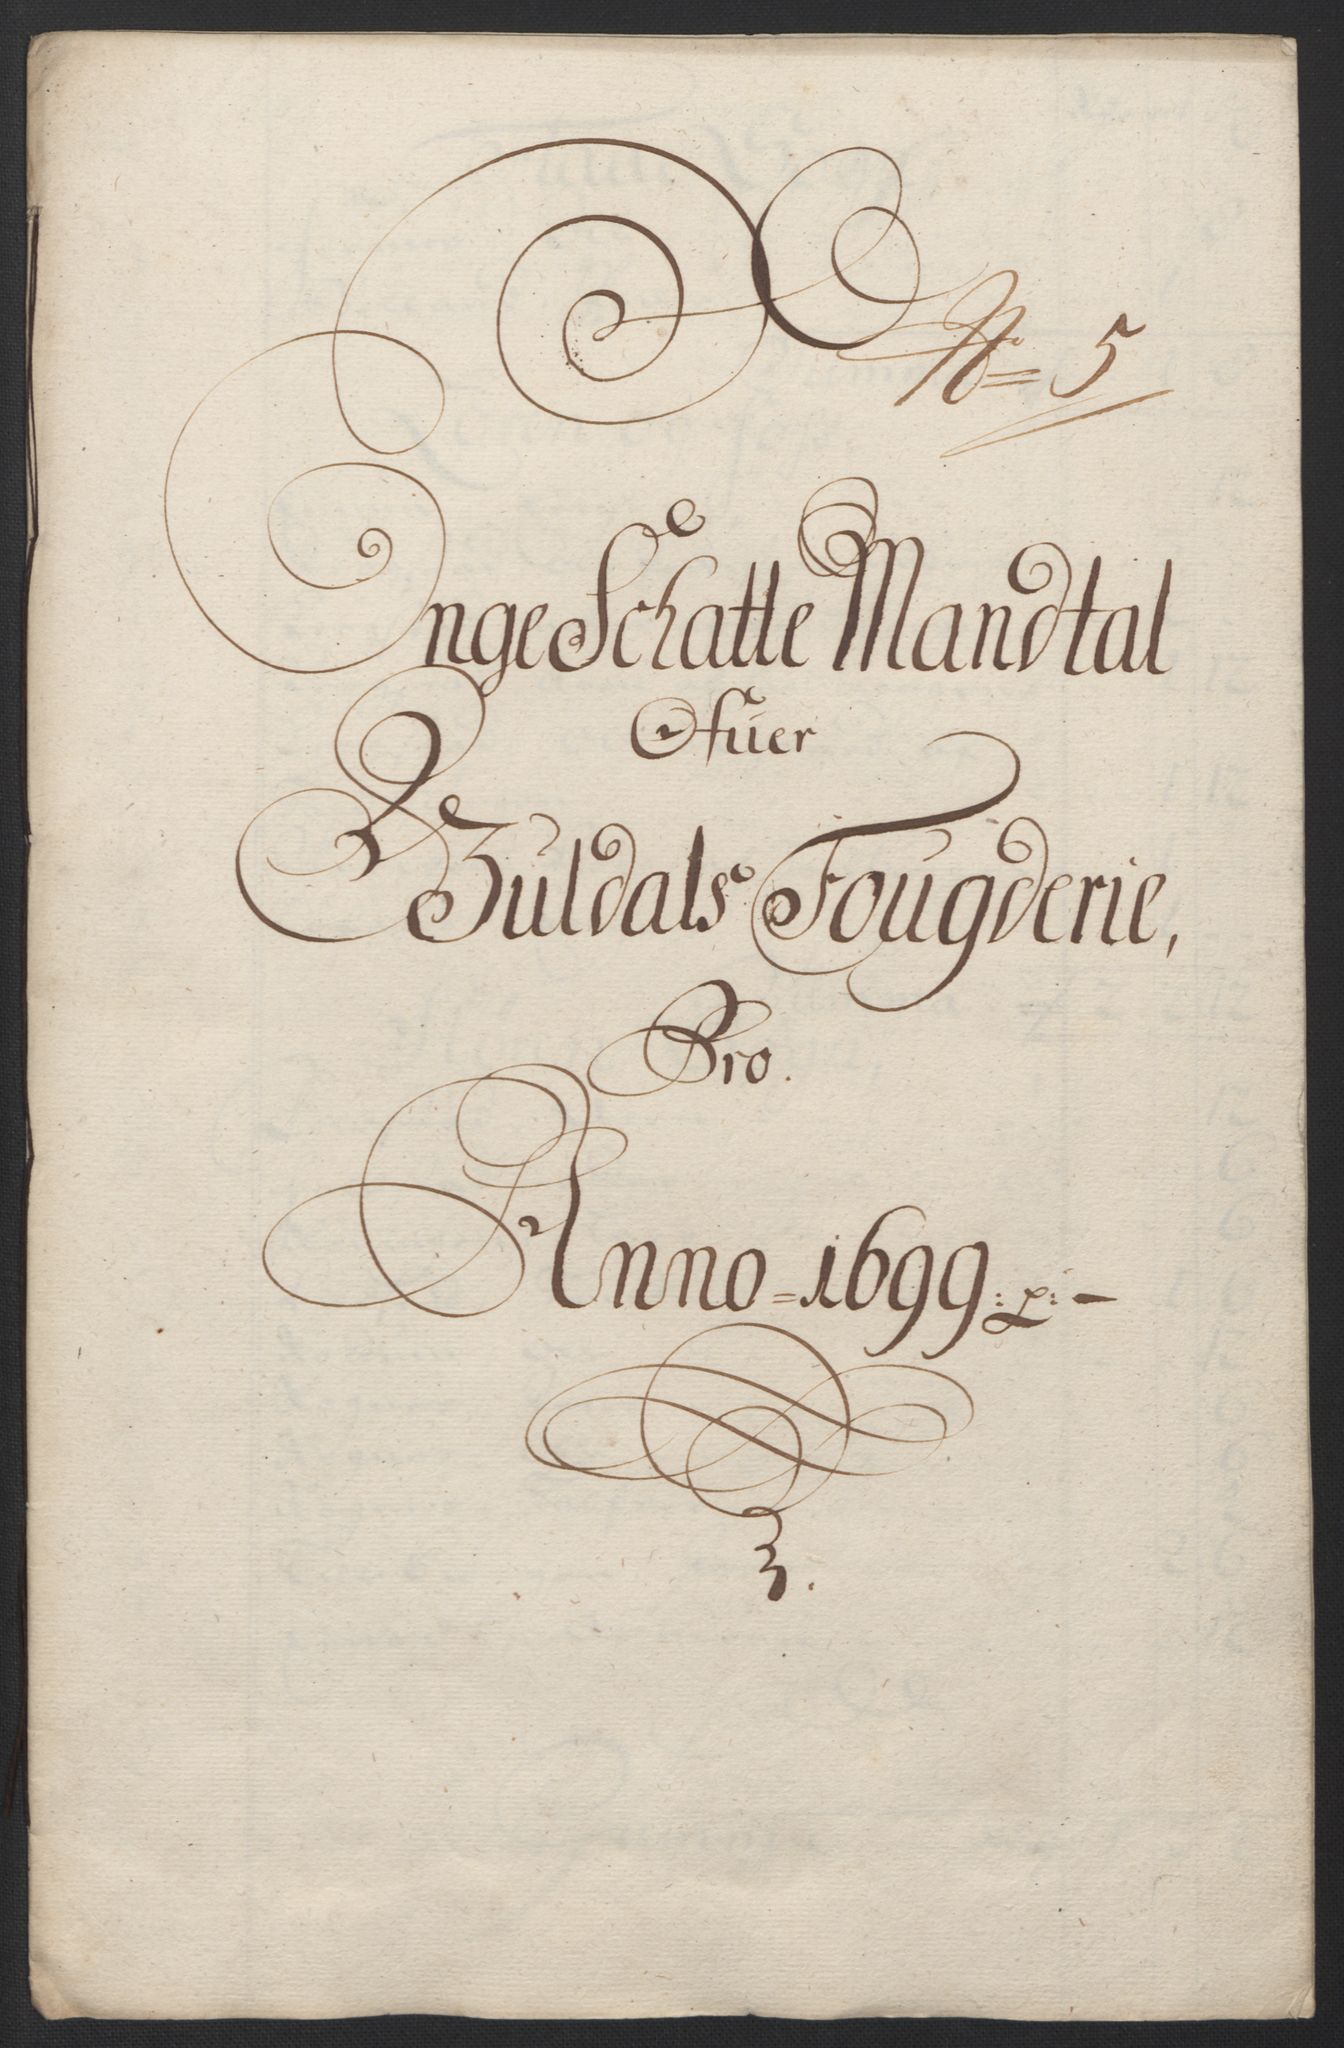 No= 5
EngeSchatte Mandtal
Ofuer
Guldals Fougderie,
Pro.
Anno=1699:
3.